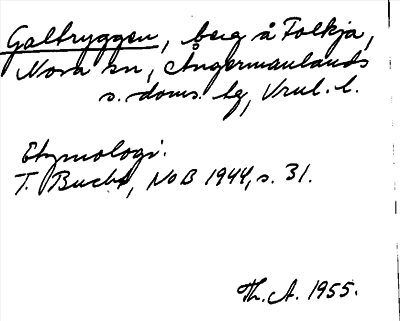 Galtryggen, berg å Folkja,
Nora sn, Ångermanlands
s. doms. tg, Vrnl. l.
Etymologi.
T. Bucht, NoB 1944, s. 31.
Th. A. 1955.